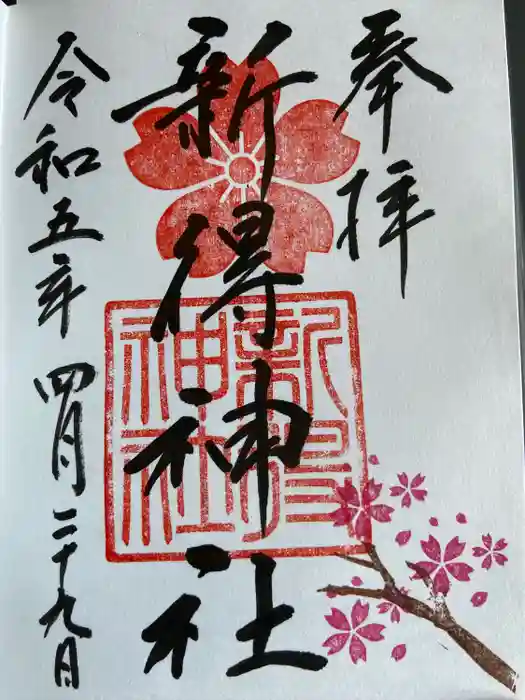 奉拝
新得神社
新得神社
令和五年四月二十九日